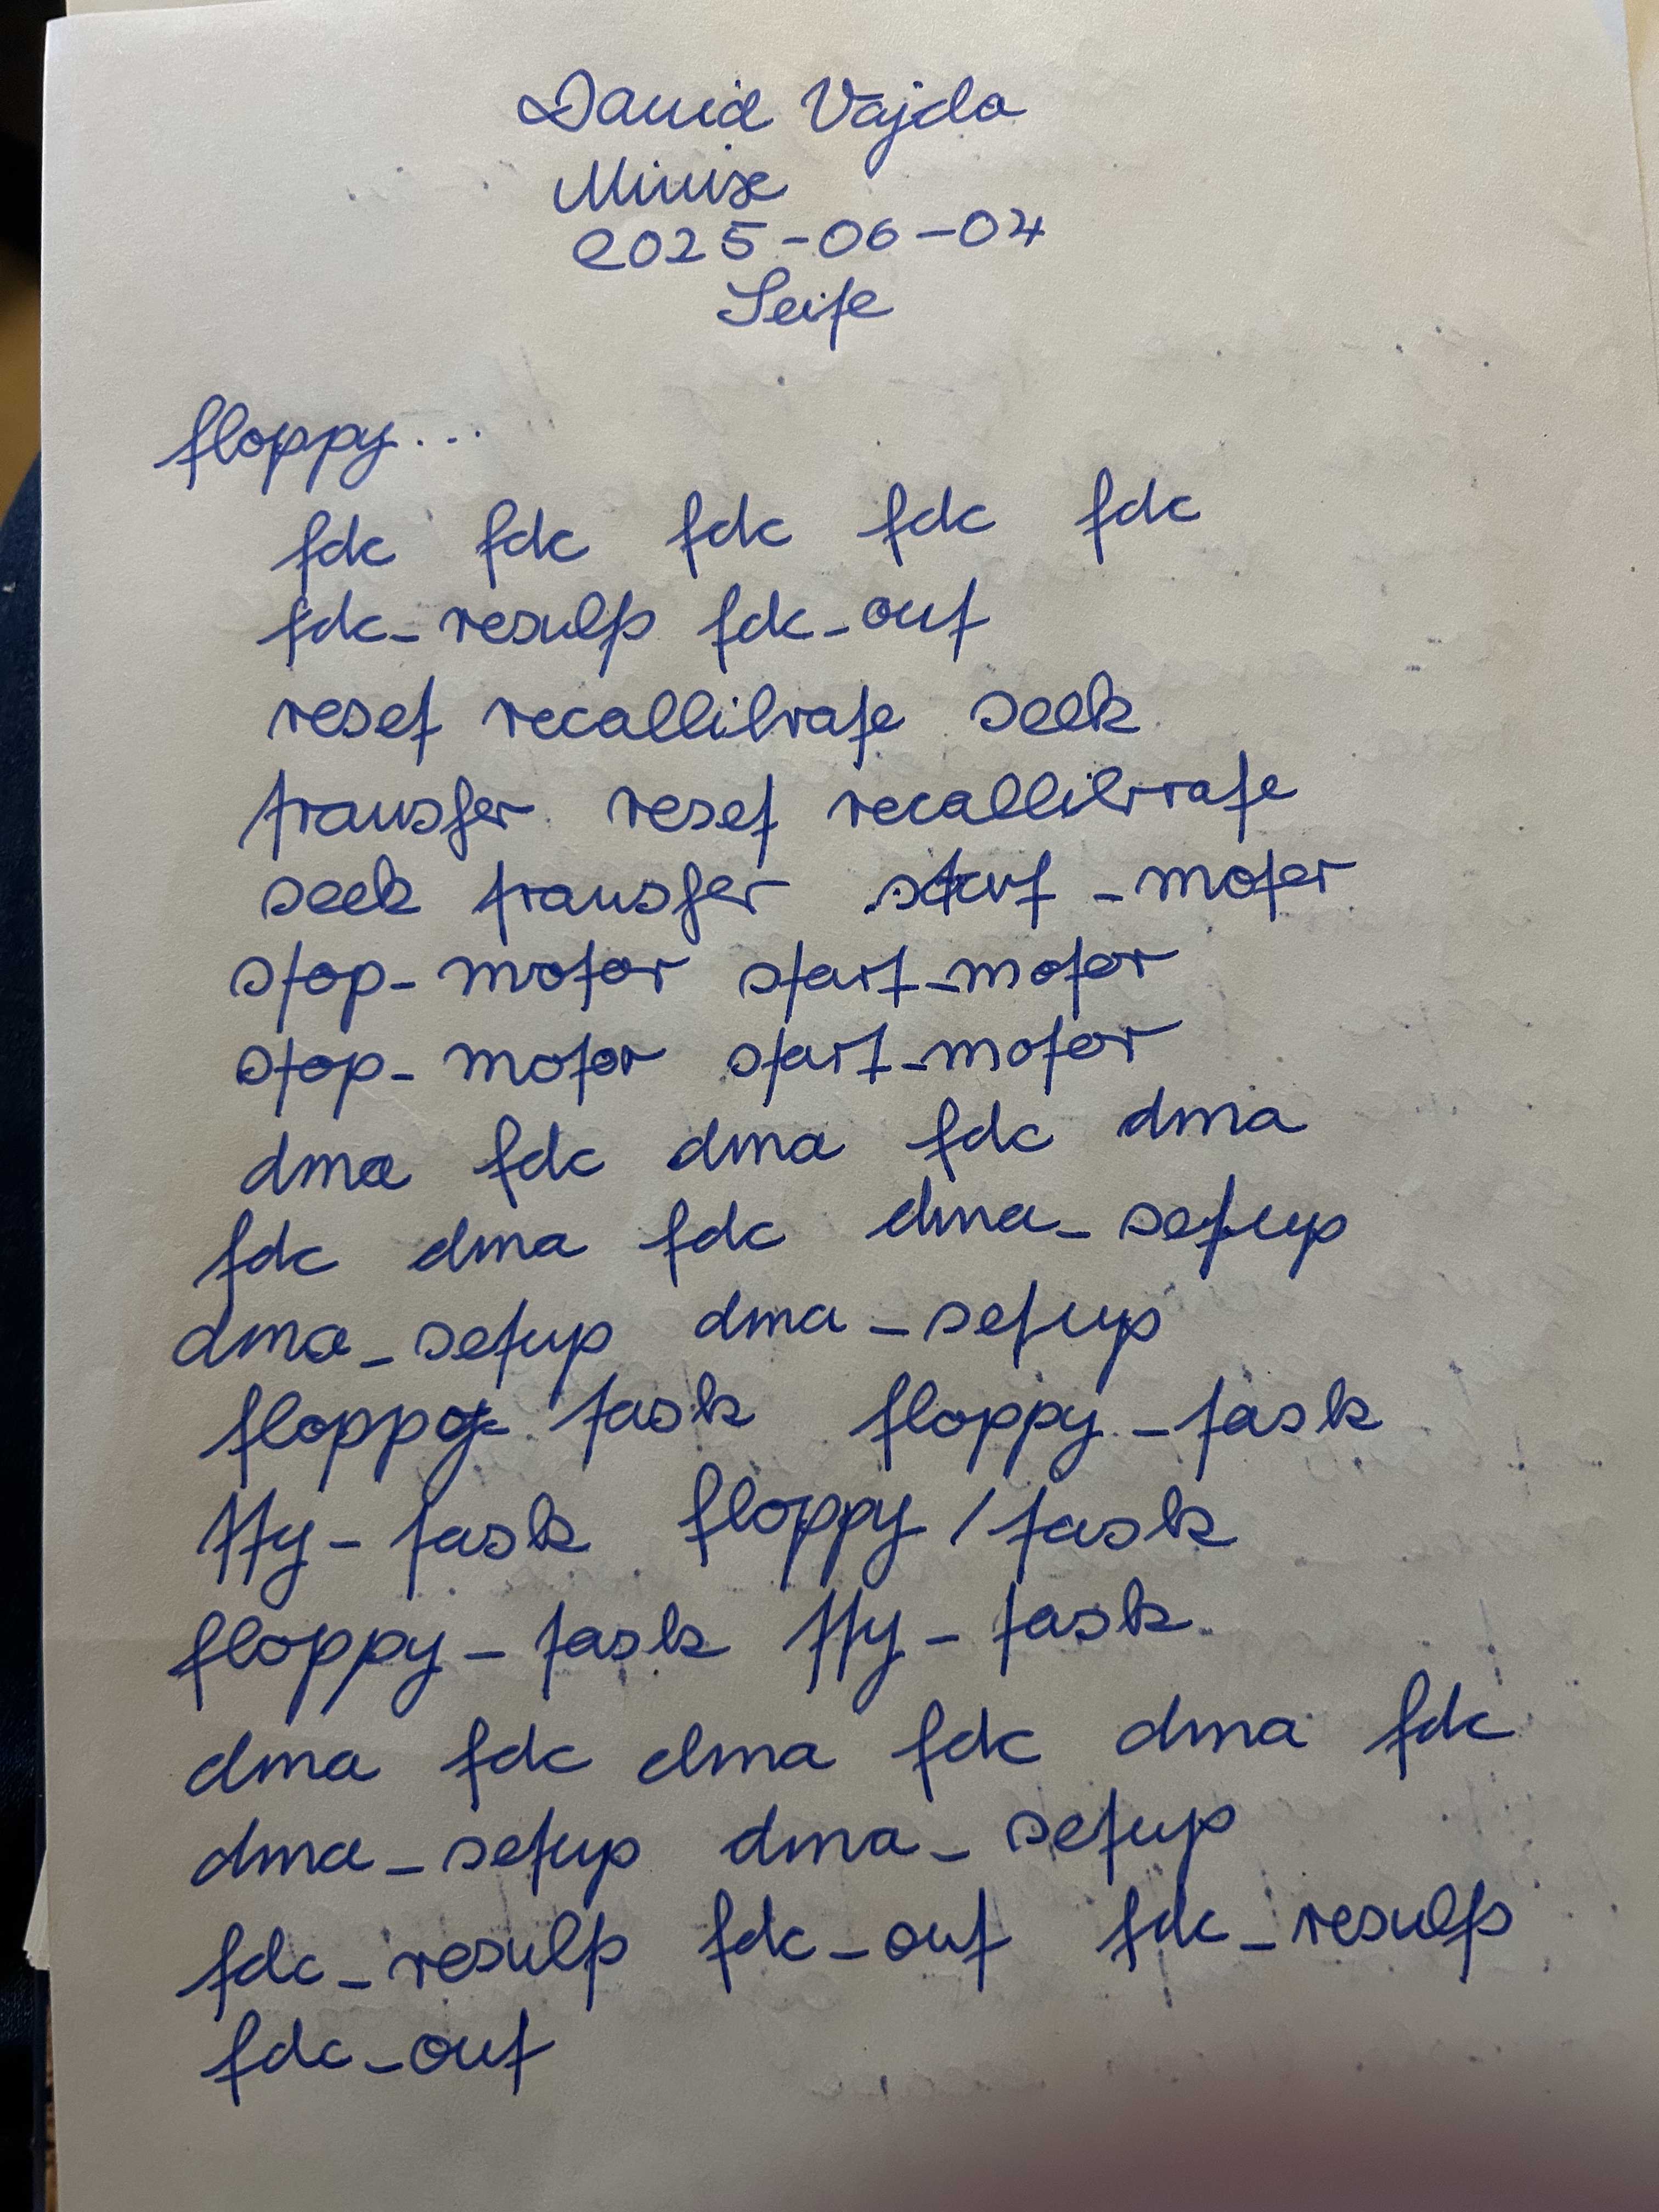 David Vajda
Minix
2025-06-04
Seife
floppy...
fdc fdc fdc fdc fdc
fdc_results fdc_out
reset recallibrate seek
transfer reset recallibrate
seek transfer start_motor
stop_motor start_motor
stop_motor start_motor
dma fdc dma fdc dma
fdc dma fdc dma_setup
dma_setup dma_setup
floppy task floppy_task
tty_task floppy/task
floppy_task tty_task
dma fdc dma fdc dma fdc
dma_setup dma_setup
fdc_results fdc_out fdc_results
fdc_out